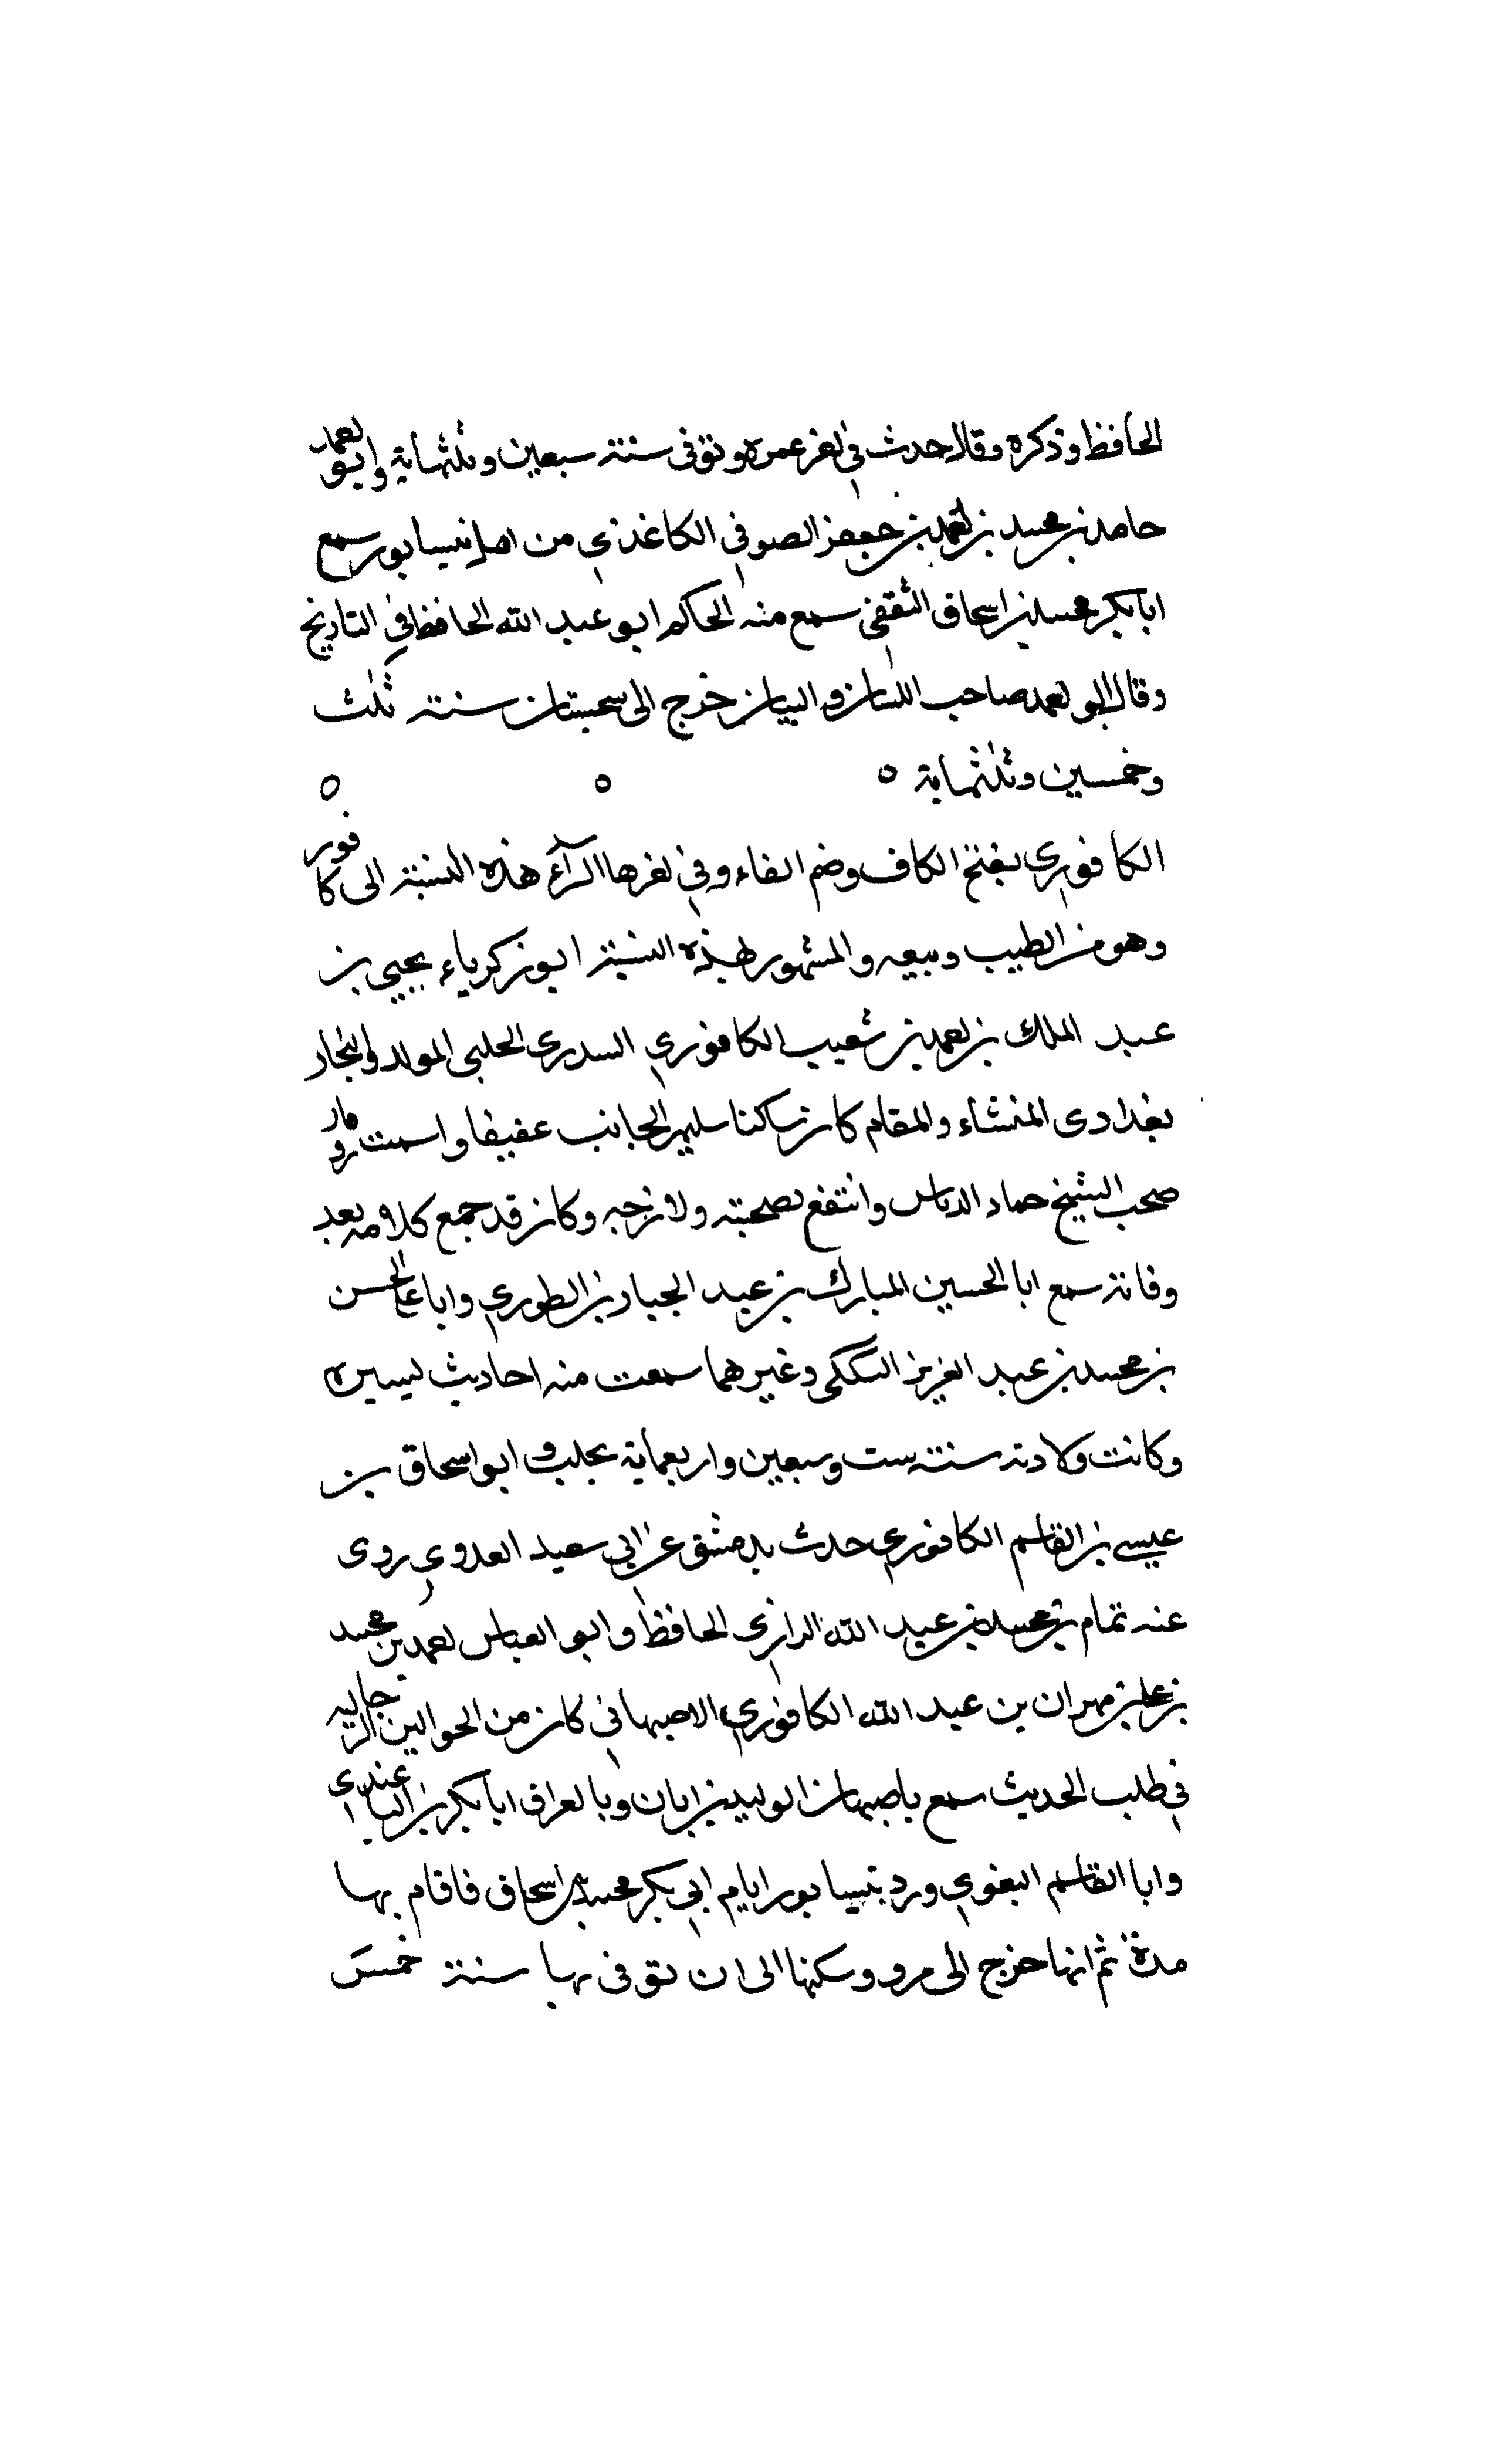 الحافظ وذكره وقال حدث في اخر عمره وتوفى سنة سبعين وثلثماية وابو احمد
حامد بن محمد بن احمد بن جعفر الصوفي الكاغذي من اهل نيسابور سمع
ابا بكر محمد بن اسحاق الثقفي سمع منه الحاكم ابو عبد الله الحافظ في التاريخ
وقال ابو احمد صاحب اللسان والبيان خرج الى سجستان سنة ثلث
وخمسين وثلثماية
الكافوري بفتح الكاف وضم الفاء وفي اخرها الرآء هذه النسبة الى كافور
وهو من الطيب وبيعه والمشهور بهذه النسبة ابو زكرياء يحيى بن
عبد الملك بن احمد بن شعيب الكافوري السدري الحلبي المولد والنجار
بغدادى المنشاء والمقام كان ساكنا سليم الجانب عفيفا واسمت
صحب الشيخ حماد الدباس وانتفع بصحبته ولازجبه وكان قد جمع كلامه بعد
وفاته سمع ابا الحسين المبارك بن عبد الجبار بن الطوري وابا الحسن
بن محمد بن عبد العزيز التككى وغيرهما سمعت منه احاديث يسيره
وكانت ولادته سنة ست وسبعين واربعماية بحلب وابو اسحاق بن
عيسى بن القاسم الكافوري حدث بدمشق عن ابي سعيد العدوي روى
عنه تمام بن محمد بن عبد الله الرازي الحافظ وابو العباس احمد بن محمد
بن على بن مهران بن عبد الله الكافوري الاصبهاني كان من الجوالين
في طلب الحديث سمع باصبهان الوليد بن ابان وبالعراق ابا بكر بن الباغندى
وابا القاسم البغوي ورد نيسابور ايام ابي بكر محمد بن اسحاق فاقام بها
مدة ثم انها خرج الى مرو وسكنها الى ان توفى بها سنة خمس